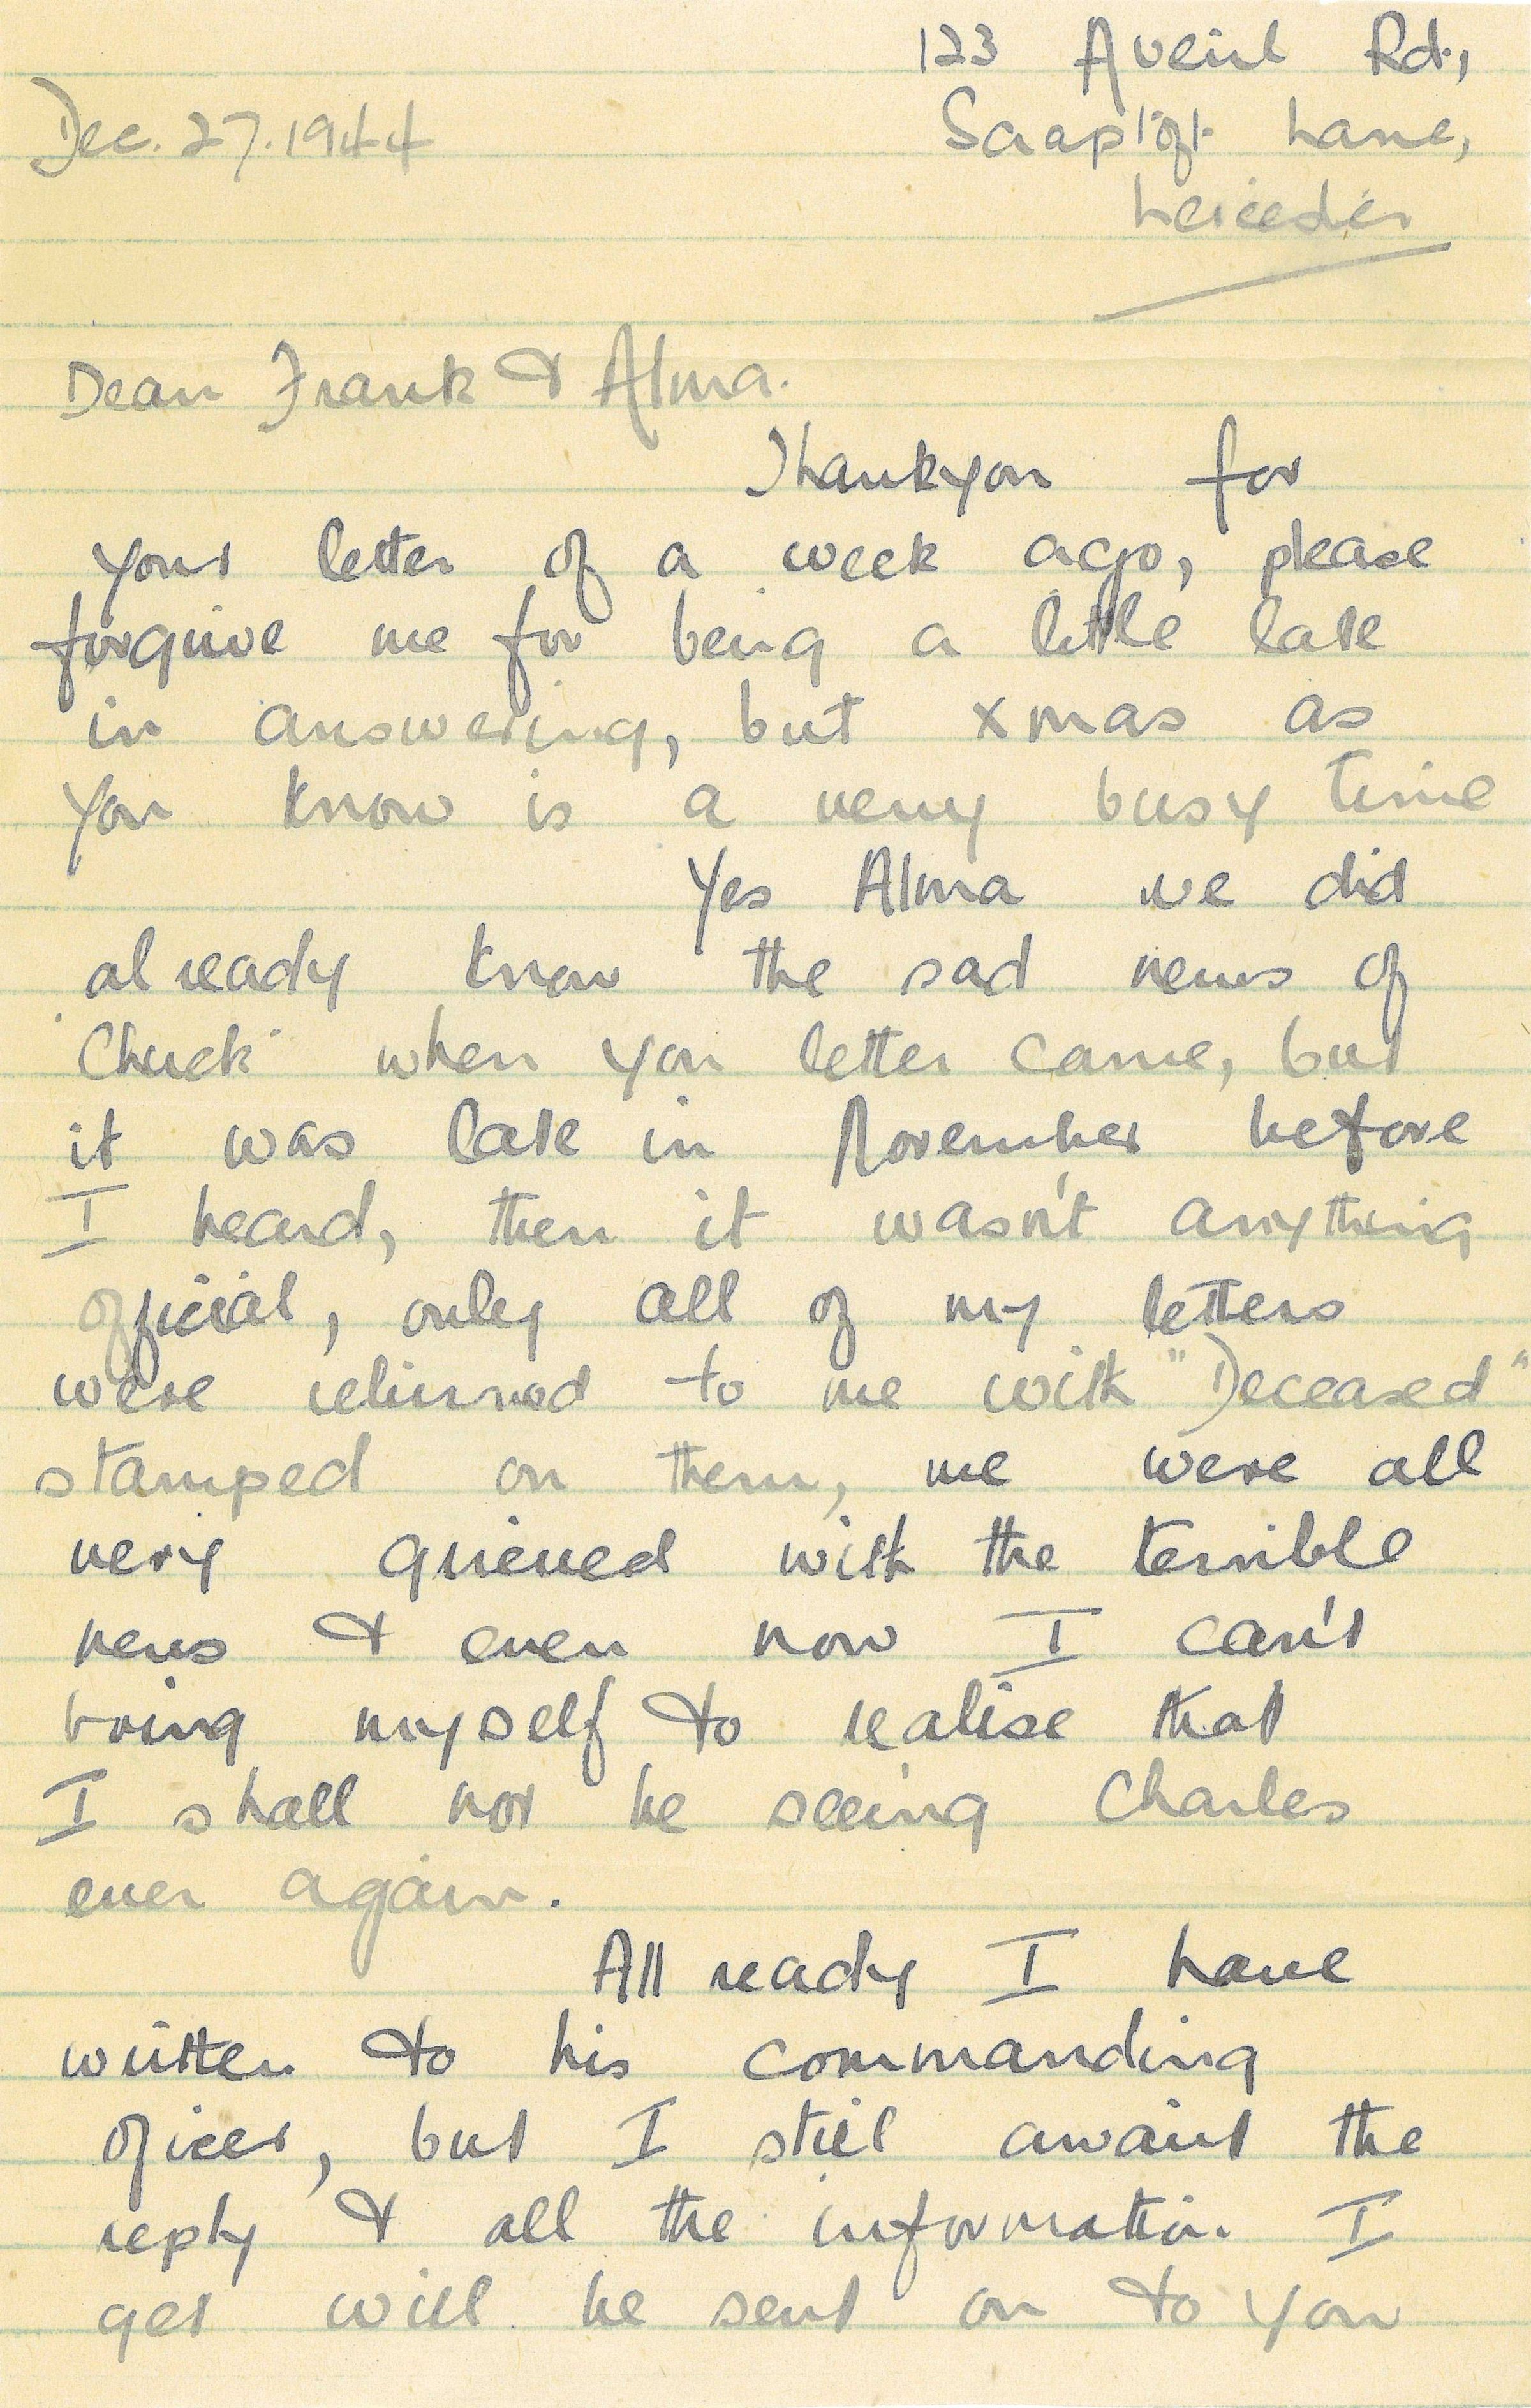 123 Averil Rd.,
Dec. 27. 1944
Scraptoft Lane,
Leicester
Dear Frank & Alma.
Thankyou for
your letter of a week ago, please
forgive me for being a little late
in answering, but xmas as
you know is a very busy time
Yes Alma we did
already know the sad news of
'Chuck' when you letter came, but
it was late in November before
I heard, then it wasn't anything
official, only all of my letters
were returned to me with "Deceased"
stamped on them, we were all
very grieved with the terrible
news & even now I can't
bring myself to realise that
I shall not be seeing Charles
ever again.
All ready I have
written to his commanding
oficer, but I still await the
reply & all the information I
get will be sent on to you